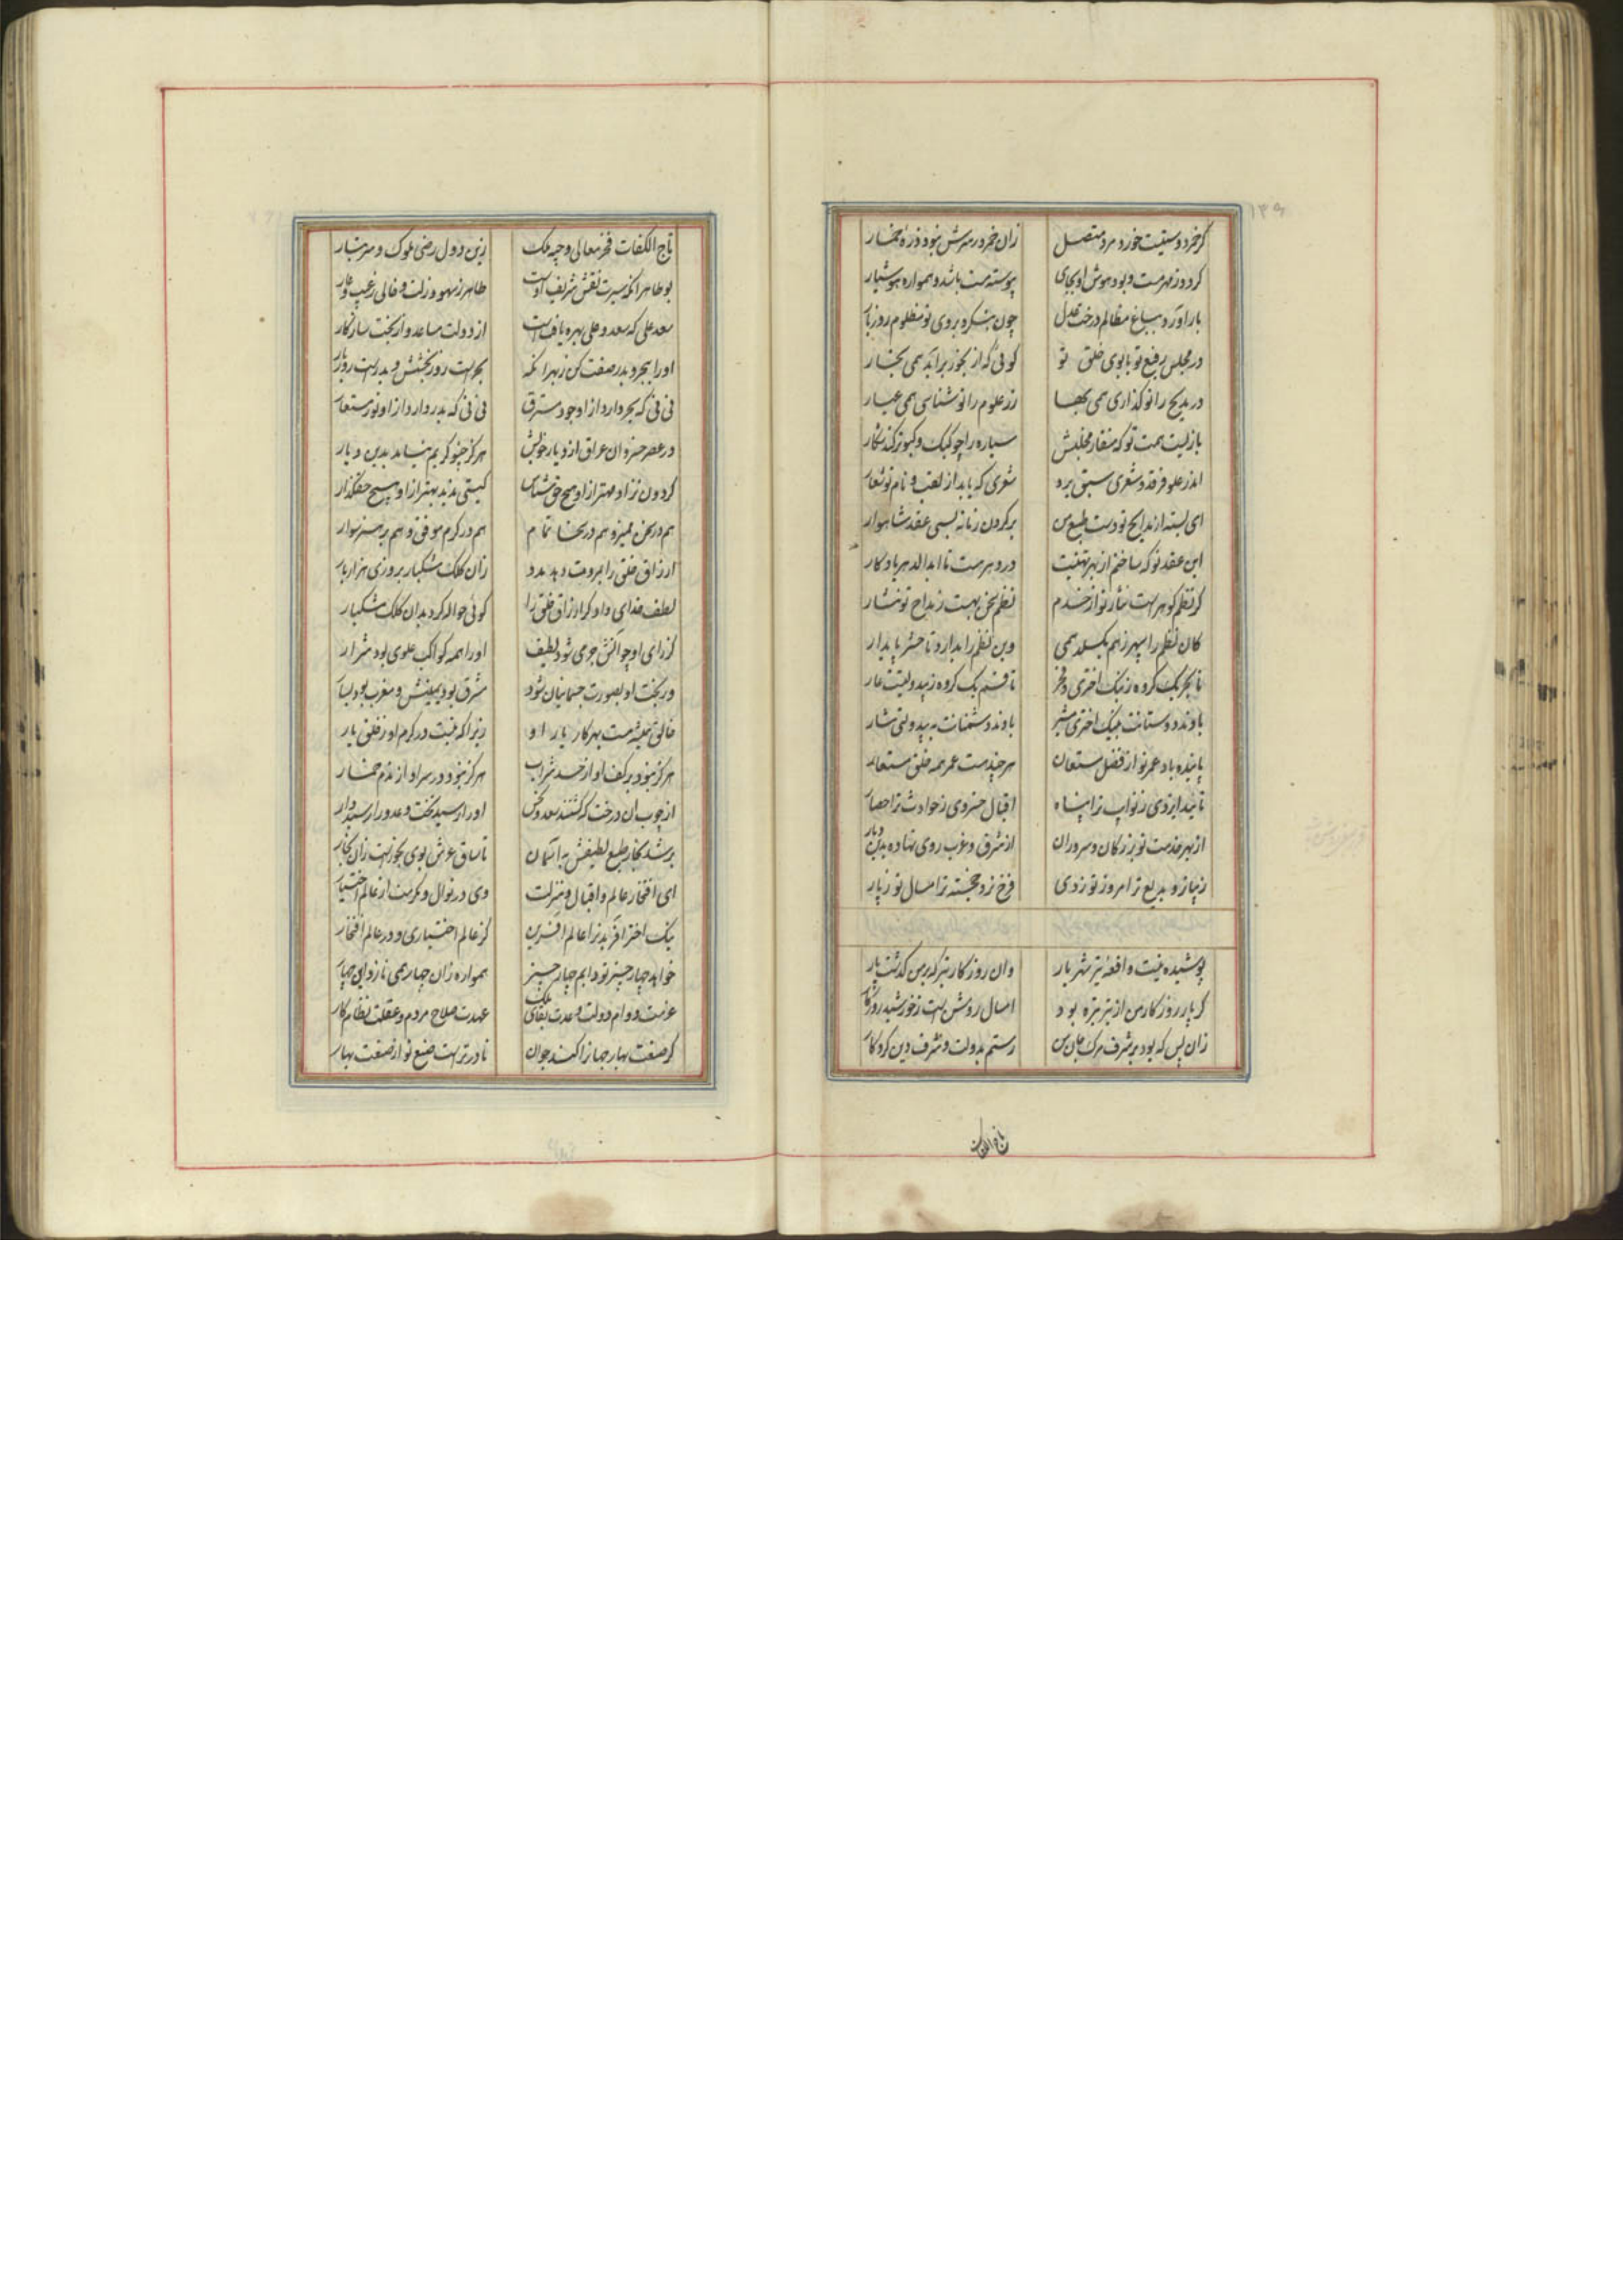 ۱۳۹
گر خمر دوستیت خورد مرد متصل زان خمر در سرش نبود ذره خمار
گردد ز مهر مست و بود هوش او بجای پیوسته مست باشد و همواره هوشیار
بار آورد بباغ مظالم درخت عدل چون بنگرد بروی تو مظلوم روز بار
در مجلس رفیع تو با بوی خلق تو گوئی که از بخور برآید همی بخار
در مدیح را تو گذاری همی بها زر علوم را تو شناسی همی عیار
بازیست همت تو که منقار و مخلبش سیاره را چو کبک و کبوتر کند شکار
اندر علو فرقد و شعری سبق برد شعری که یابد از لقب و نام تو شعار
ای بسته از مدایح تو دست طبع من بر گردن زمانه بسی عقد شاهوار
این عقد نو که ساختم از بهر تهنیت در دهر هست تا ابد الدهر یادگار
گر نظم گوهر است نثار تو از خدم نظم سخن بهست ز مداح تو نثار
کان نظم را سپهر ز هم بگسلد همی وین نظم را بدارد تا حشر پایدار
تا فخر یک گروه ز نیک اختری و فخر تا قسم یک گروه ز بیدولتیست عار
بادند دوستانت به نیک اختری مشیر بادند دشمنانت به بیدولتی مشار
پاینده باد عمر تو از فضل مستعان هر چند هست عمر همه خلق مستعار
تایید ایزدی ز نوایب ترا پناه اقبال خسروی ز حوادث ترا حصار
از بهر خدمت تو بزرگان و سروران از شرق و غرب روی نهاده بدین دیار
زیباتر و بدیع تر امروز تو ز دی فرخ تر و خجسته تر امسال تو ز پار
پوشیده نیست واقعه تیر شهریار وان روزگار تیر که بر من گذشت پار
گر پار روزگار من از تیر تیره بود امسال روشن است ز خورشید روزگار
زان پس که بود بر شرف مرگ جان من رستم بدولت و شرف دین کردگار
تاج الکفات
تاج الکفات فخر معالی وجیه ملک زین دول رضی ملوک و سر تبار
بو طاهر آنکه سیرت نقش شریف اوست طاهر ز سهو و زلت و خالی ز عیب و عار
سعد علی که سعد و علی بهره یافتست از دولت مساعد و از بخت سازگار
او را ببحر و بدر صفت کن ز بهر آنکه بحر است روز بخشش و بدر است روز بار
نی نی که بحر دارد از او جود مسترق نی نی که بدر دارد از او نور مستعار
در عصر خسروان عراق از دیار خویش هرگز چنو کریم نیامد بدین دیار
گردون نزاد مهتر از او هیچ حق شناس گیتی ندید بهتر از او هیچ حقگذار
هم در سخن ممیز و هم در سخا تمام هم در کرم موفق و هم بر هنر سوار
ارزاق خلق را بمروت دهد مدد زان کلک مشکبار بروزی هزار بار
لطف خدای داد گر ارزاق خلق را گوئی حواله کرد بدان کلک مشکبار
گر رای او چو آتش جوی شود لطیف او را همه کواکب علوی بود شرار
ور بخت او بصورت جسمانیان شود مشرق بود یمینش و مغرب بود یسار
خالق همیشه هست بهر کار یار او زیرا که نیست در کرم او ز خلق یار
هرگز نبود بر کف او از خسد شراب هرگز نبود در سر او از ندم خمار
از چوب آن درخت که گشتند سعد و نحس او را رسید تخت و عدو را رسید دار
بر شد بخار طبع لطیفش به آسمان تا ساق عرش بوی بخور است زان بخار
ای افتخار عالم و اقبال و منزلت وی در نوال و مکرمت از عالم اختیار
نیک اختر آفرید ترا عالم آفرین کز عالم اختیاری و در عالم افتخار
خواهد چهار چیز تو دایم چهار چیز همواره زان چهار همی نازد این چهار
عزمت دوام دولت و عدلت بقای ملک عهدت صلاح مردم و عقلت نظام کار
گر صنعت بهار جهان را کند جوان نادرتر است صنع تو از صنعت بهار